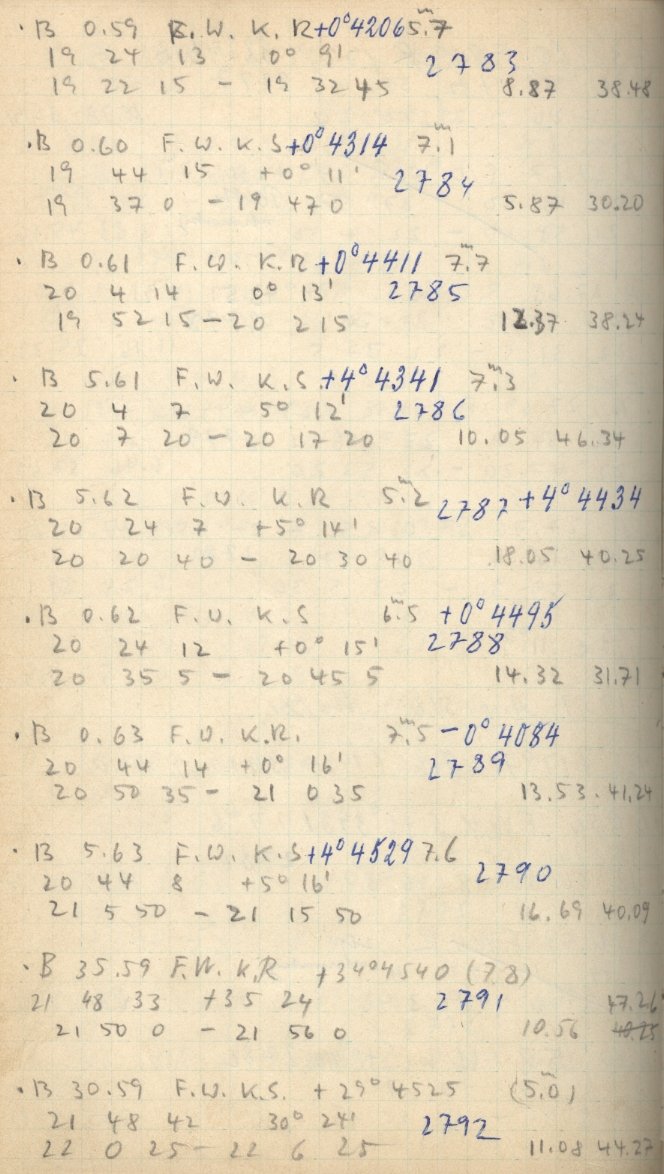 · B 0.59 F. W. K. R +0° 4206 5.ᵐ7
19 24 13 0° 9' 2783
19 22 15 – 19 32 45 8.87 38.48
· B 0.60 F. W. K. S +0° 4314 7.ᵐ1
19 44 15 +0° 11' 2784
19 37 0 – 19 47 0 5.87 30.20
· B 0.61 F. W. K. R +0° 4411 7.ᵐ7
20 4 14 0° 13' 2785
19 52 15 – 20 2 15 12.37 38.24
· B 5.61 F. W. K. S. +4° 4341 7.ᵐ3
20 4 7 5° 12' 2786
20 7 20 – 20 17 20 10.05 46.34
· B 5.62 F. W. K. R 5.ᵐ2 2787 +4° 4434
20 24 7 +5° 14'
20 20 40 – 20 30 40 18.05 40.25
· B 0.62 F. W. K. S 6.ᵐ5 +0° 4495
20 24 12 +0° 15' 2788
20 35 5 – 20 45 5 14.32 31.71
· B 0.63 F. W. K. R. 7.ᵐ5 –0° 4084
20 44 14 +0° 16' 2789
20 50 35 – 21 0 35 13.53 41.24
· B 5.63 F. W. K. S +4° 4529 7.6
20 44 8 +5° 16' 2790
21 5 50 – 21 15 50 16.69 40.09
· B 35.59 F. W. K. R +34° 4540 (7.8)
21 48 33 +35 24 2791 47.26
21 50 0 – 21 56 0 10.56 40.25
· B 30.59 F. W. K. S. +29° 4525 (5.ᵐ0)
21 48 42 30° 24' 2792
22 0 25 – 22 6 25 11.08 44.27